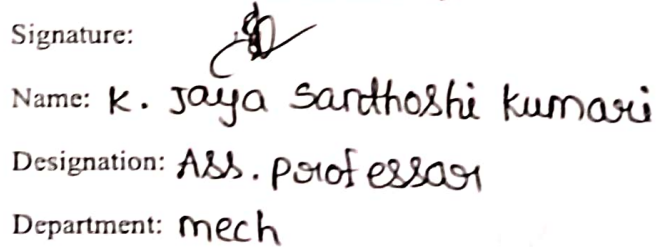 Signature:
Name: K. Jaya Santhoshi Kumari
Designation: Ass. professor
Department: mech